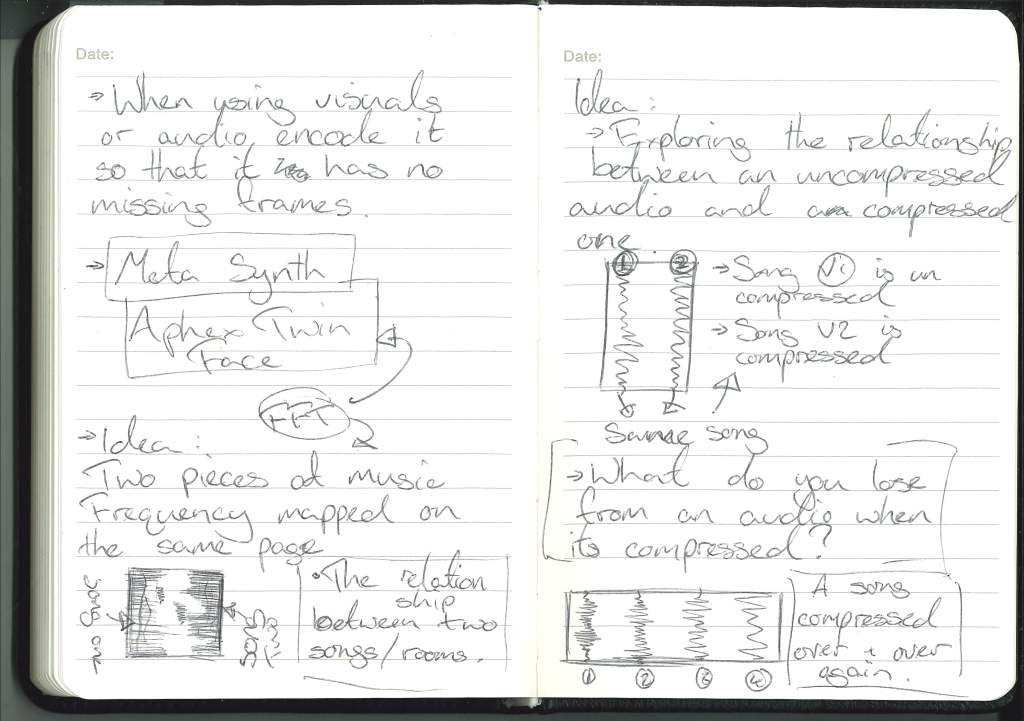 Date:
→ When using visuals
or audio encode it
so that it has no
missing frames.
→ Meta Synth
Aphex Twin
Face
FFT
→ Idea:
Two pieces of music
Frequency mapped on
the same page
song one
song
• The relation
ship
between two
songs/rooms.
Date:
Idea:
→ Exploring the relationship
between an uncompressed
audio and a compressed
one.
1 2
→ Song V1 is un
compressed
→ Song V2 is
compressed
Same song
→ What do you lose
from an audio when
its compressed?
1 2 3 4
A song
compressed
over + over
again.